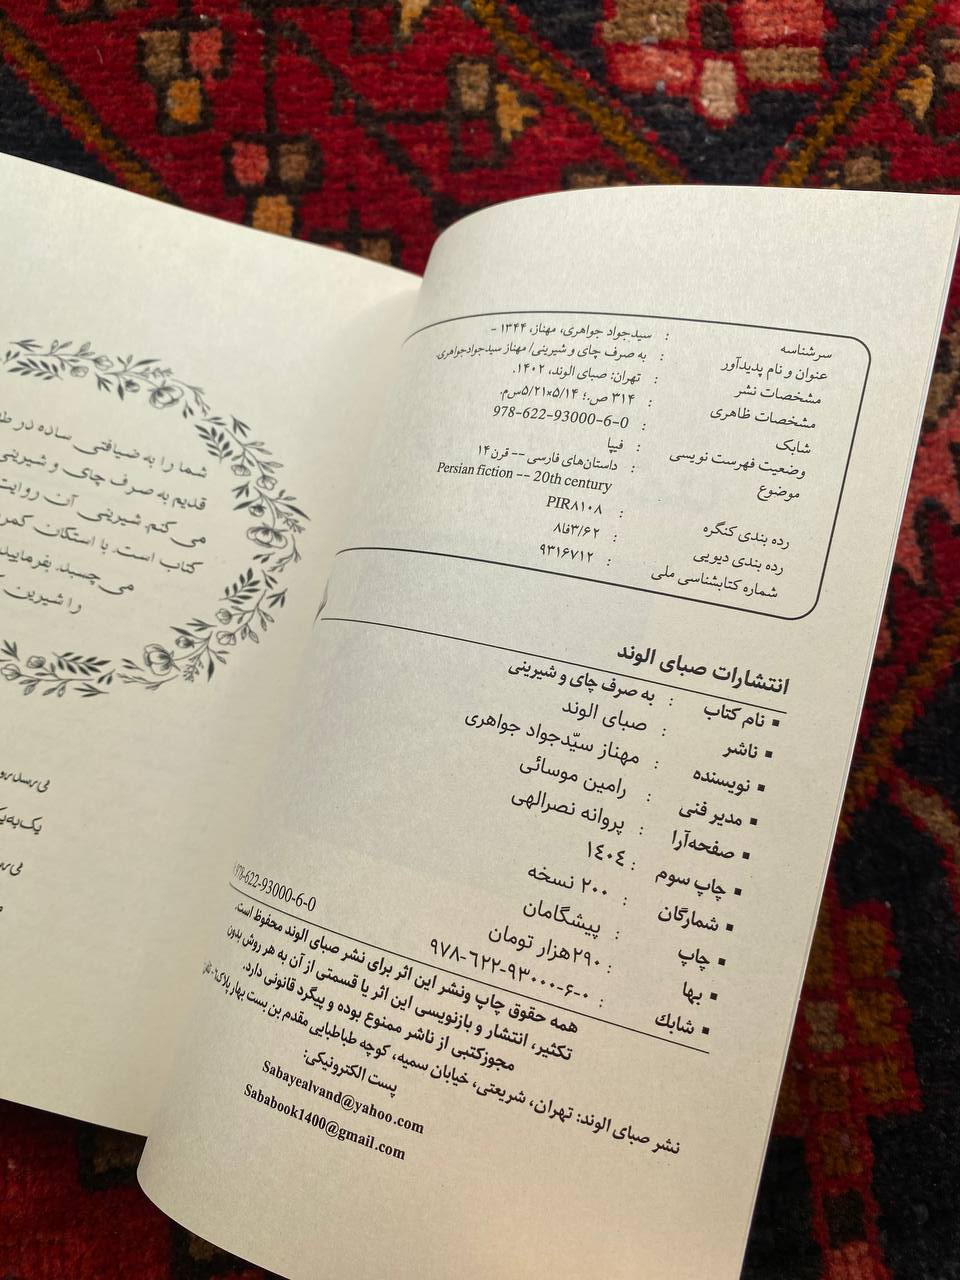 سرشناسه : سیدجواد جواهری، مهناز، ۱۳۴۴ -
عنوان و نام پدیدآور : به صرف چای و شیرینی/ مهناز سیدجوادجواهری.
مشخصات نشر : تهران: صبای الوند، ۱۴۰۲.
مشخصات ظاهری : ۳۱۴ ص.؛ ۵/۱۴×۵/۲۱س‌م.
شابک : 978-622-93000-6-0
وضعیت فهرست نویسی : فیپا
موضوع : داستان‌های فارسی -- قرن۱۴
Persian fiction -- 20th century
رده بندی کنگره : PIR۸۱۰۸
رده بندی دیویی : ۸فا۳/۶۲
شماره کتابشناسی ملی : ۹۳۱۶۷۱۲
انتشارات صبای الوند
▪ نام کتاب : به صرف چای و شیرینی
▪ ناشر : صبای الوند
▪ نویسنده : مهناز سیّدجواد جواهری
▪ مدیر فنی : رامین موسائی
▪ صفحه‌آرا : پروانه نصرالهی
▪ چاپ سوم : ۱٤۰٤
▪ شمارگان : ۲۰۰ نسخه
▪ چاپ : پیشگامان
▪ بها : ۲۹۰هزار تومان
▪ شابك : ۹۷۸-٦۲۲-۹۳۰۰۰-۶-۰
978-622-93000-6-0
همه حقوق چاپ ونشر این اثر برای نشر صبای الوند محفوظ است.
تکثیر، انتشار و بازنویسی این اثر یا قسمتی از آن به هر روش بدون
مجوزکتبی از ناشر ممنوع بوده و پیگرد قانونی دارد.
نشر صبای الوند: تهران، شریعتی، خیابان سمیه، کوچه طباطبایی مقدم بن بست بهار پلاک٦-
پست الکترونیکی:
Sabayealvand@yahoo.com
Sababook1400@gmail.com
شما را به ضیافتی ساده در
قدیم به صرف چای و شیرینی
می کنم. شیرینی آن روایت
کتاب است. با استکان
می چسبد. بفرمایید
را شیرین